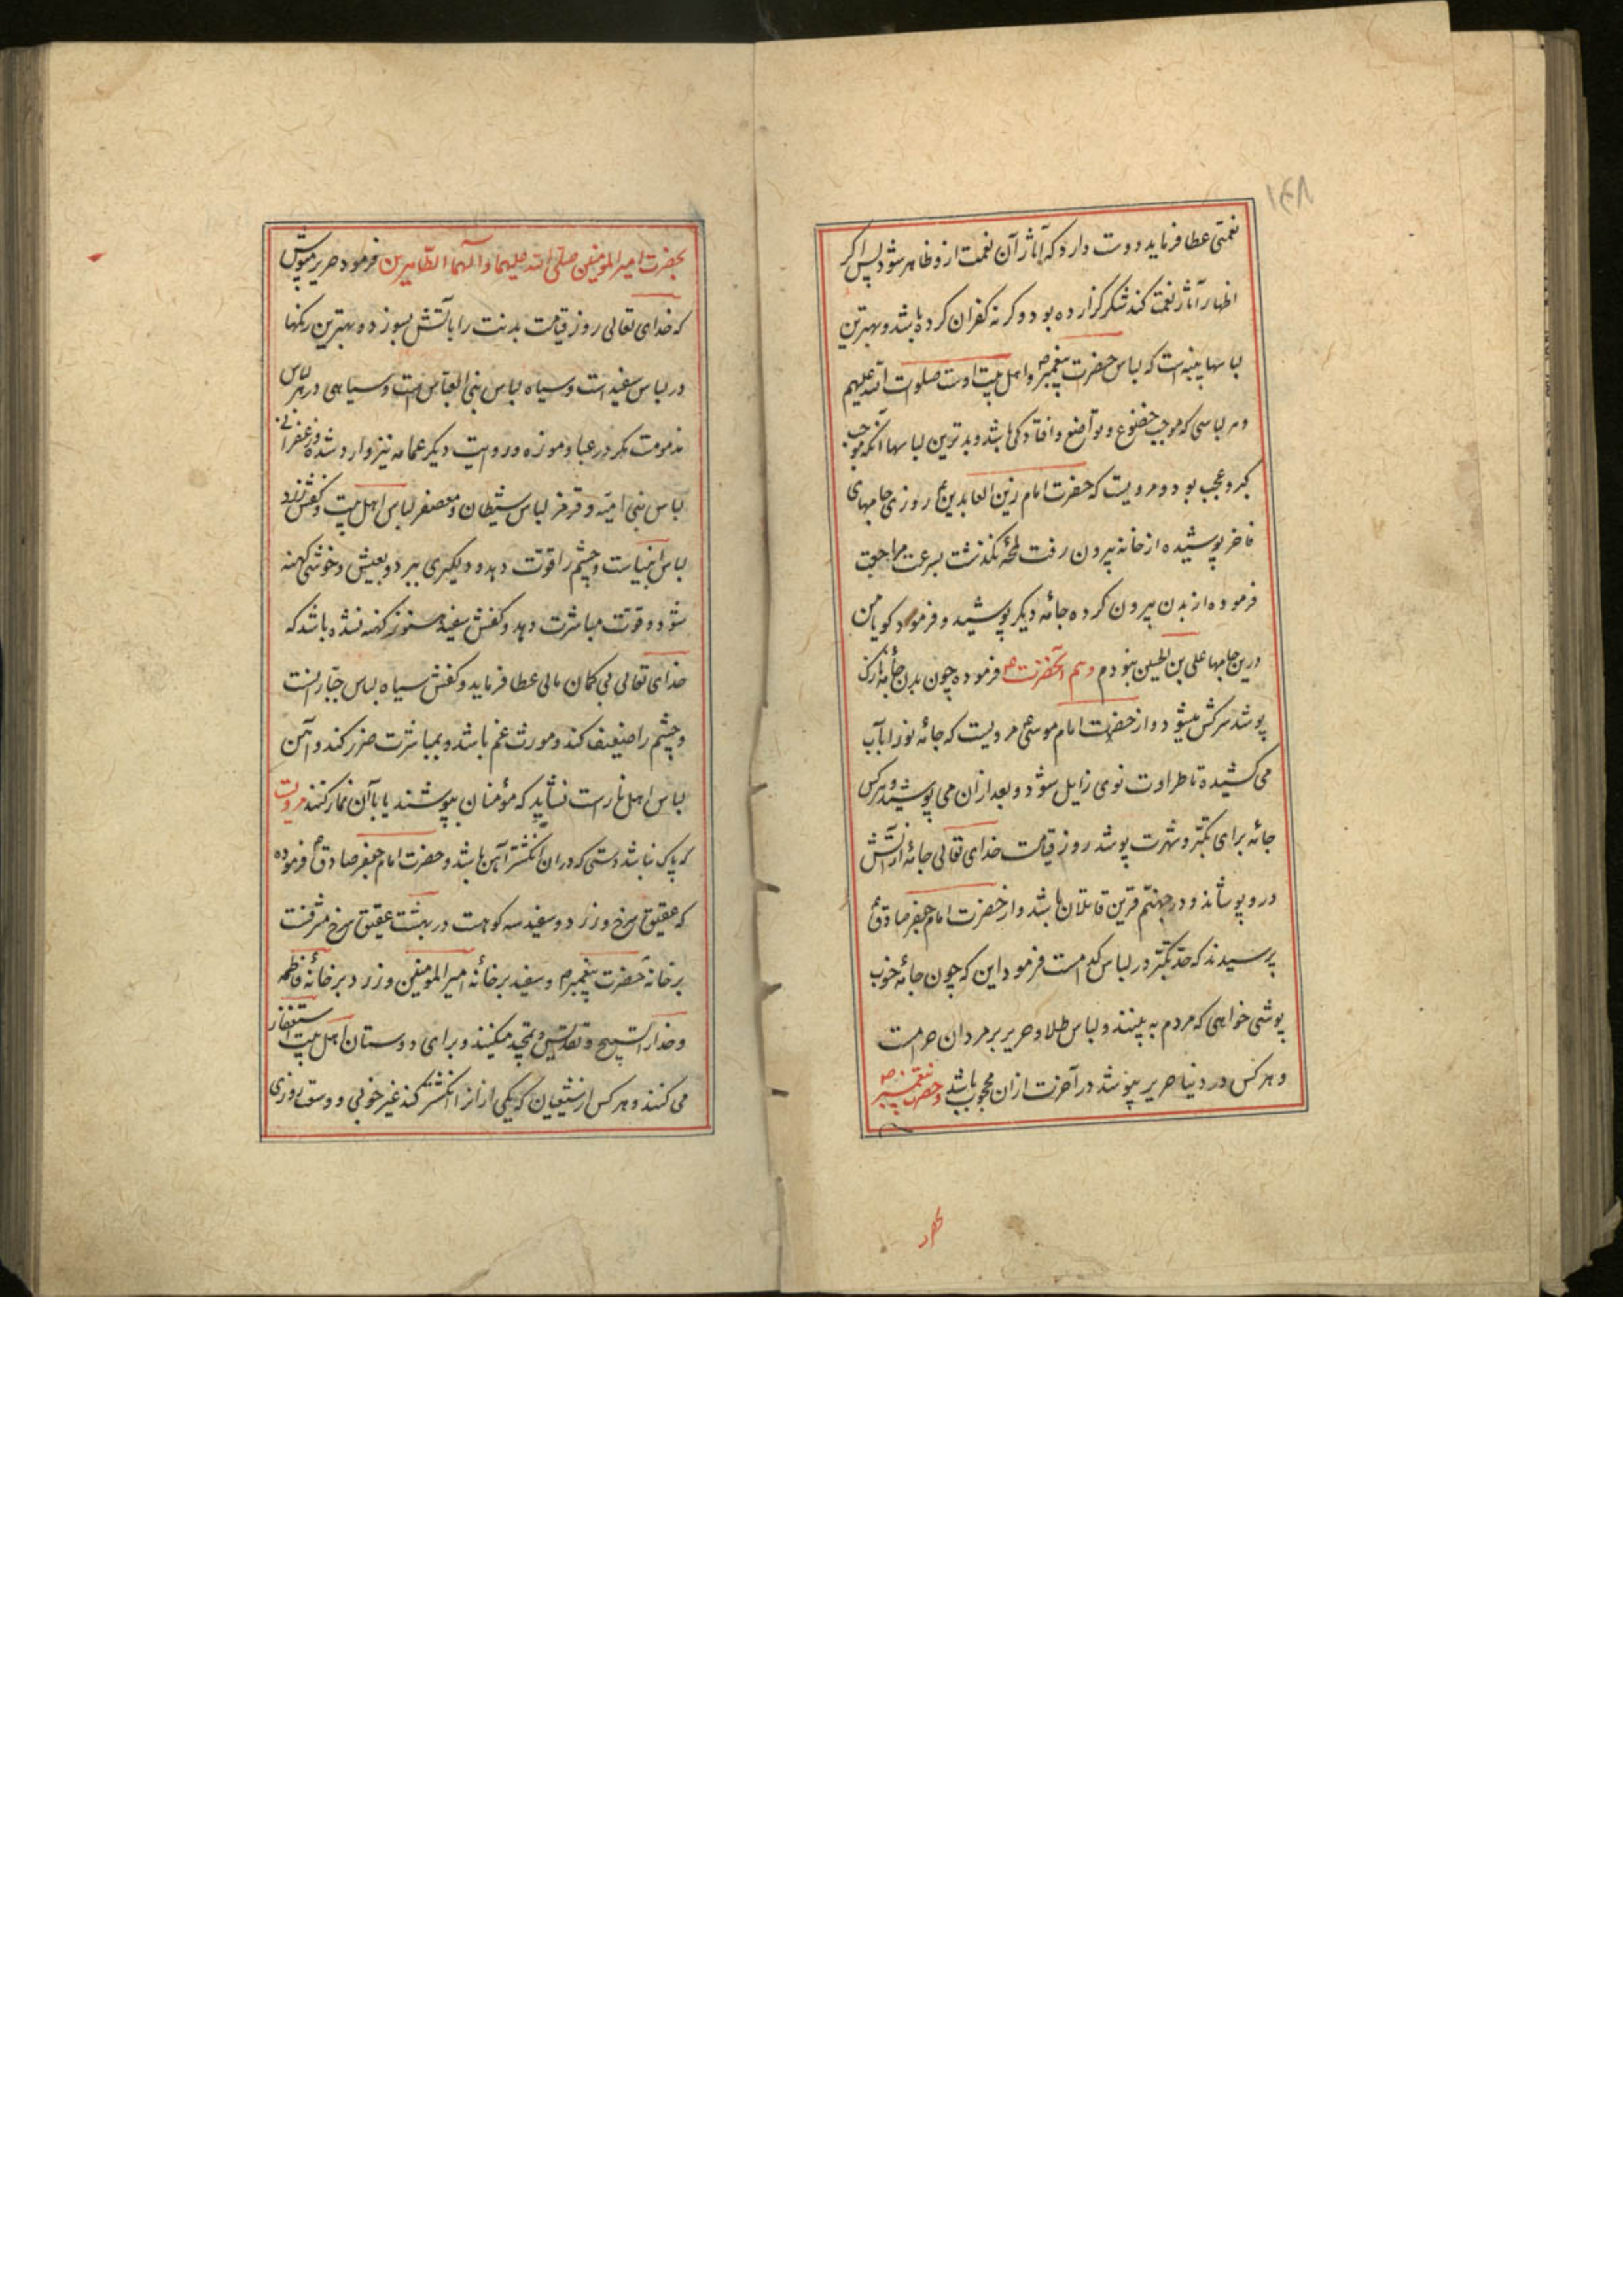 ۱۶۸
نعمتی عطا فرماید دوست دارد که آثار آن نعمت ازو ظاهر شود پس اگر
اظهار آثار نعمت کند شکر گزارده بود و گرنه کفران کرده باشد و بهترین
لباسها پنبه است که لباس حضرت پیغمبرص و اهل بیت اوست صلوات الله علیهم
و هر لباسی که موجب خضوع و تواضع و افتادگی باشد و بدترین لباسها آنکه موجب
کبر و عجب بود و مرویست که حضرت امام زین العابدین ع روزی جامهای
فاخر پوشیده از خانه بیرون رفت لمحهٔ نگذشت بسرعت مراجعت
فرموده از بدن بیرون کرده جامهٔ دیگر پوشید و فرمود گویا من
درین جامها علی بن الحسین نبودم و هم آنحضرت ع فرموده چون بدن جامهٔ نازک
پوشد سرکش میشود و از حضرت امام موسی ع مرویست که جامهٔ نو را بآب
می کشیده تا طراوت نوی زایل شود و بعد ازان می پوشید و هر کس
جامهٔ برای تکبّر و شهرت پوشد روز قیامت خدای تعالی جامهٔ از آتش
درو پوشاند و در جهنّم قرین قاتلان باشد و از حضرت امام جعفر صادق ع
پرسیدند که حدّ تکبّر در لباس کدامست فرمود این که چون جامهٔ خوب
پوشی خواهی که مردم به بینند و لباس طلا و حریر بر مردان حرامست
و هر کس در دنیا حریر بپوشد در آخرت ازان محجوب باشد و حضرت پیغمبر ص
بحضرت امیر المؤمنین صلّی الله علیهما و آلهما الطّاهرین فرمود حریر مپوش
که خدای تعالی روز قیامت بدنت را بآتش بسوزد و بهترین رنگها
در لباس سفید است و سیاه لباس بنی العباس است و سیاهی در هر لباس
مذمومست مگر در عبا و موزه و روایت دیگر عمامه نیز وارد شده و زعفرانی
لباس بنی امیّه و قرمز لباس شیطان و معصفر لباس اهل بیت و کفش زرد
لباس انبیاست و چشم را قوّت دهد و دلگیری ببرد و بعیش و خوشی کهنه
شود و قوّت مباشرت دهد و کفش سفید هنوز کهنه نشده باشد که
خدای تعالی بی کمان مالی عطا فرماید و کفش سیاه لباس جبّارانست
و چشم را ضعیف کند و مورث غم باشد و بمباشرت ضرر کند و آهن
لباس اهل نارست نشاید که مؤمنان بپوشند یا با آن نماز کنند مرویست
که پاک نباشد دستی که دران انگشتر آهن باشد و حضرت امام جعفر صادق ع فرموده
که عقیق سرخ و زرد و سفید سه کوهست در بهشت عقیق سرخ مشرفست
بر خانهٔ حضرت پیغمبر ص و سفید بر خانهٔ امیر المؤمنین و زرد بر خانهٔ فاطمه
و خدا را تسبیح و تقدیس و تمجید میکنند و برای دوستان اهل بیت استغفار
می کنند و هر کس از شیعیان که یکی ازانرا انگشتر کند غیر خوبی و وسعت روزی